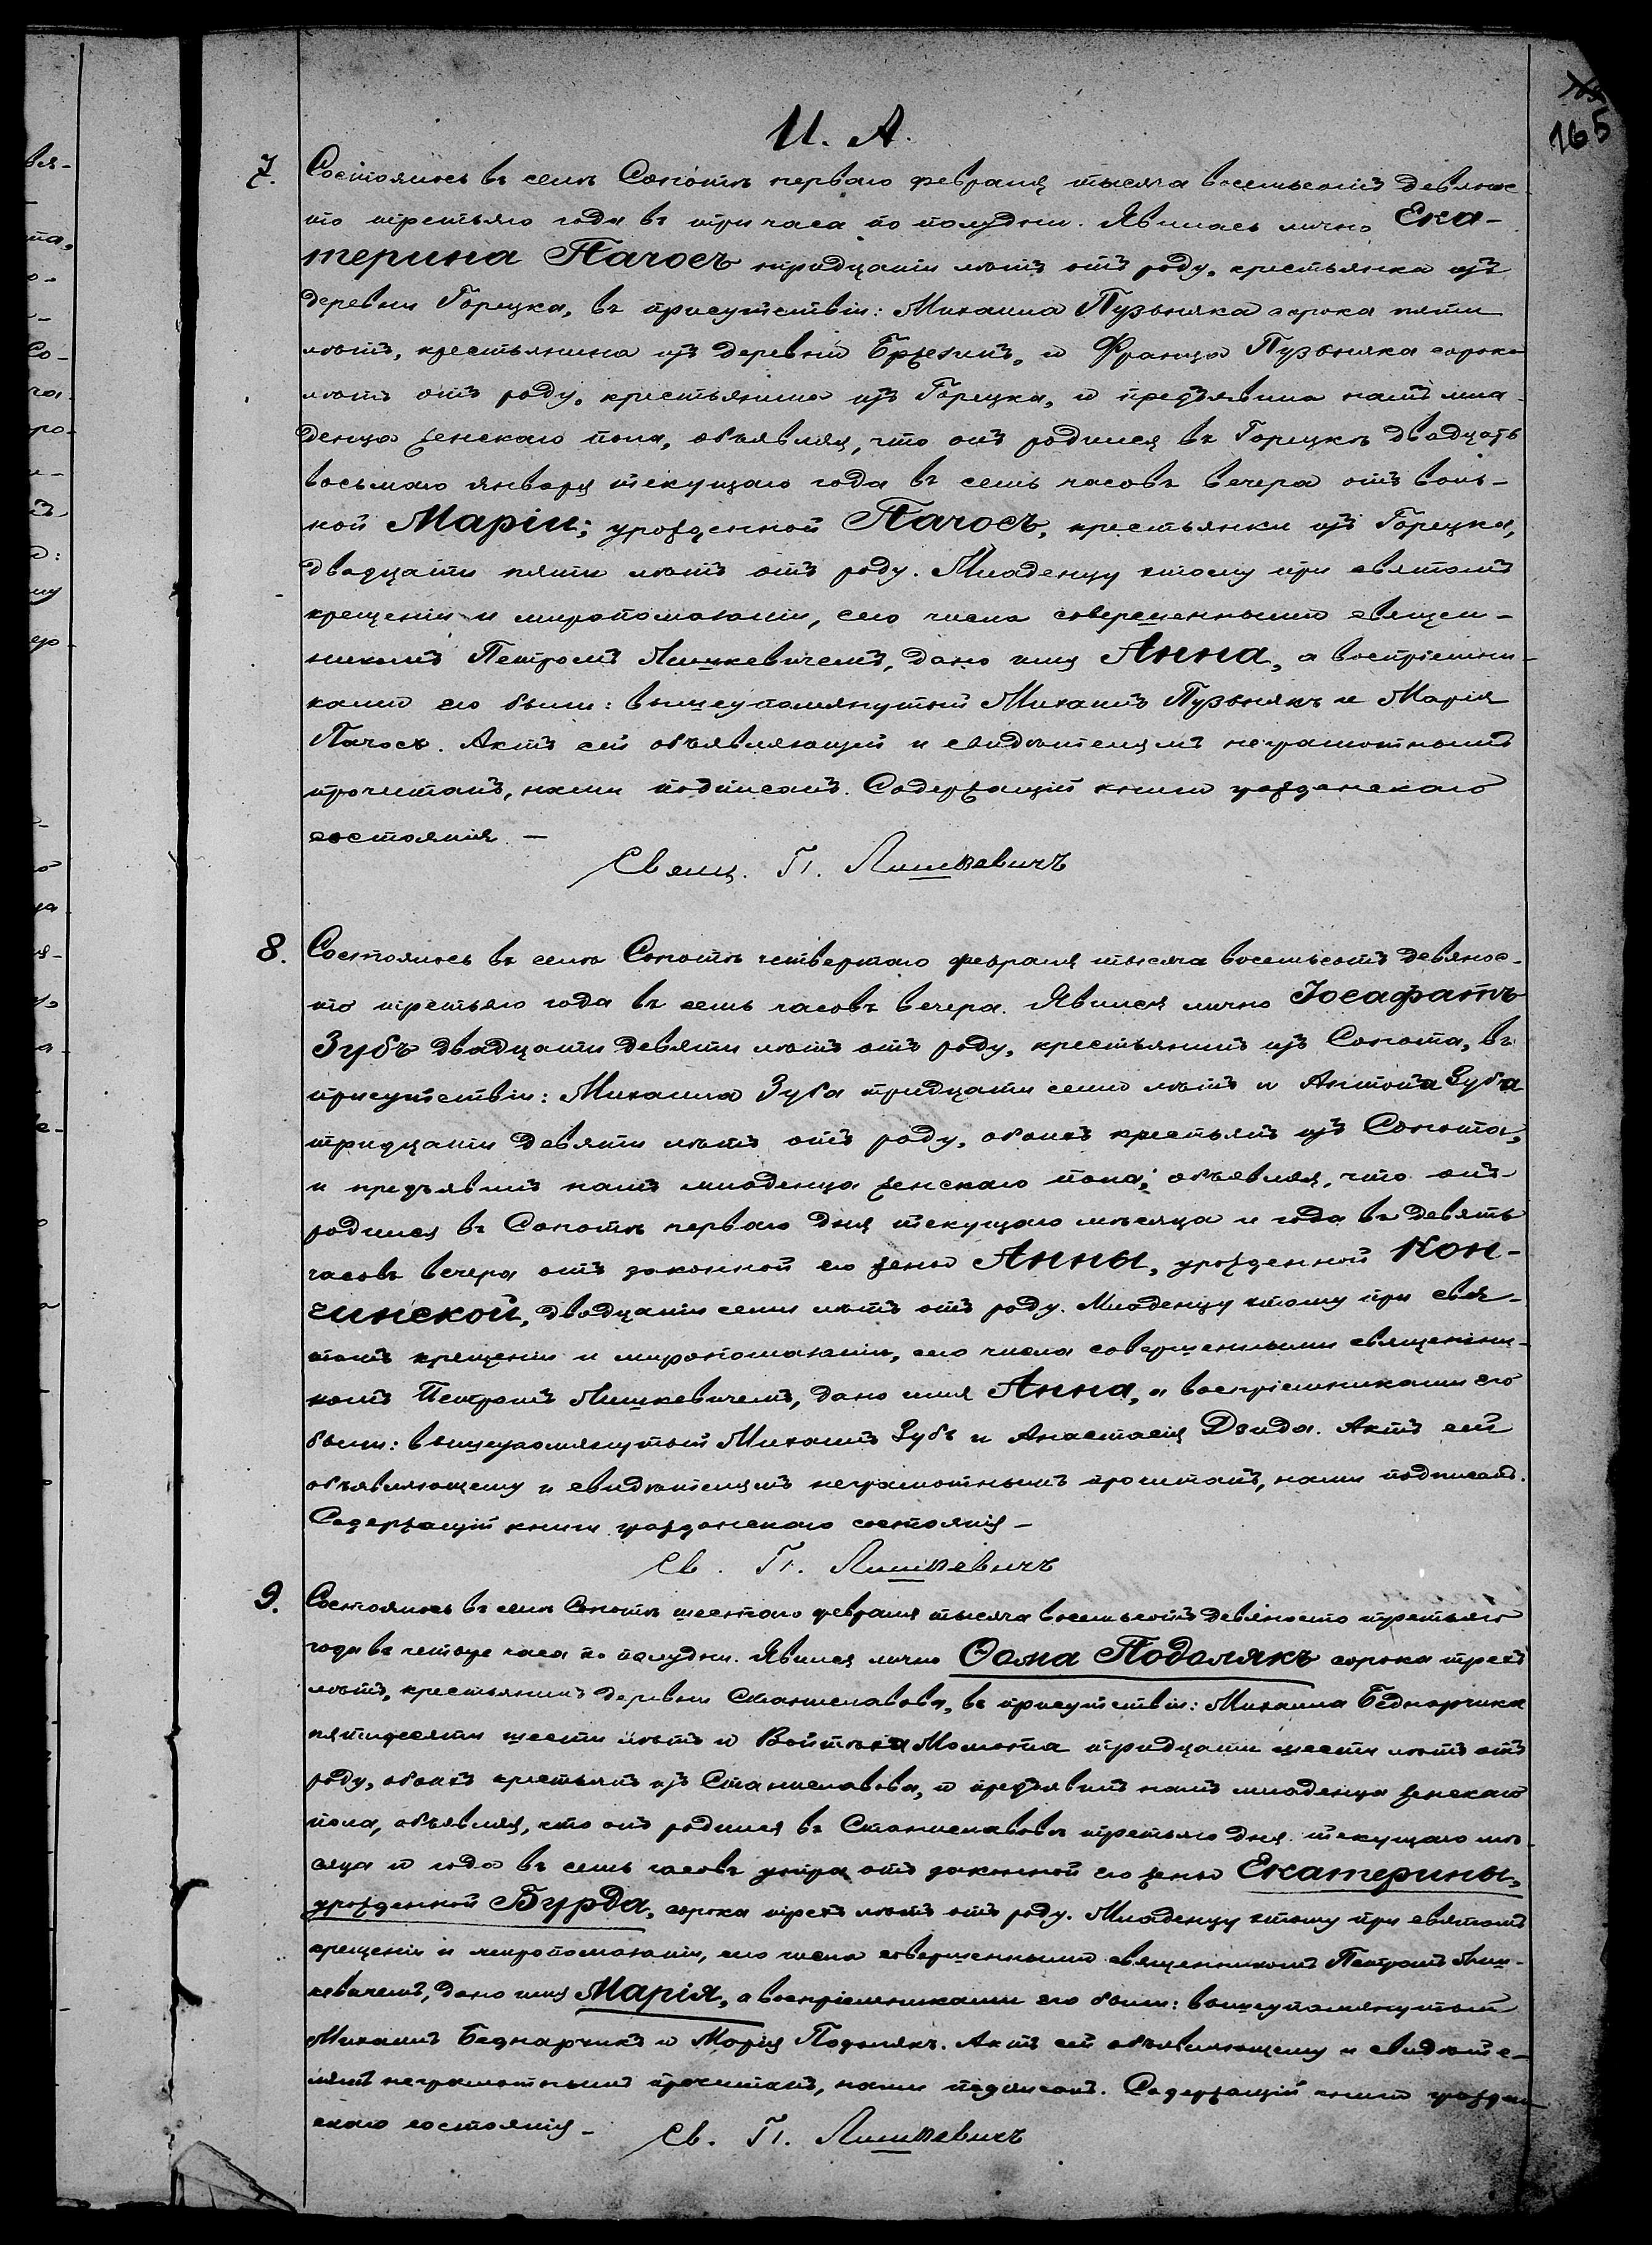 И. А.
165
7. Состоялось въ селѣ Сопотѣ перваго февраля тысяча восемьсотъ девянос-
то третьяго года въ три часа по полудни. Явилась лично Ека-
терина Пачосъ тридцати лѣтъ отъ роду, крестьянка изъ
деревни Горецка, въ присутствіи: Михаила Пузьняка сорока пяти
лѣтъ, крестьянина изъ деревни Брезинъ, и Франца Пузьняка сорока
лѣтъ отъ роду, крестьянина изъ Горецка, и предъявила намъ мла-
денца женскаго пола, объявляя, что онъ родился въ Горецкѣ двадцать
восьмаго января текущаго года въ семь часовъ вечера отъ воль-
ной Маріи, урожденной Пачосъ, крестьянки изъ Горецка,
двадцати пяти лѣтъ отъ роду. Младенцу этому при святомъ
крещеніи и миропомазаніи, сего числа совершенными священ-
никомъ Петромъ Лишкевичемъ, дано имя Анна, а воспріемни-
ками его были: вышеупомянутый Михаилъ Пузьнякъ и Марія
Пачосъ. Актъ сей объявляющей и свидѣтелямъ неграмотнымъ
прочитанъ, нами подписанъ. Содержащій книги гражданскаго
состоянія. —
Свящ. П. Лишкевичъ
8. Состоялось въ селѣ Сопотѣ четвертаго февраля тысяча восемьсотъ девянос-
то третьяго года въ семь часовъ вечера. Явился лично Іосафатъ
Зубъ двадцати девяти лѣтъ отъ роду, крестьянинъ изъ Сопота, въ
присутствіи: Михаила Зуба тридцати семи лѣтъ и Антона Зуба
тридцати девяти лѣтъ отъ роду, обоихъ крестьянъ изъ Сопота,
и предъявилъ намъ младенца женскаго пола, объявляя, что онъ
родился въ Сопотѣ перваго дня текущаго мѣсяца и года въ девять
часовъ вечера отъ законной его жены Анны, урожденной Кон-
чинской, двадцати семи лѣтъ отъ роду. Младенцу этому при свя-
томъ крещеніи и миропомазаніи, сего числа совершенными священни-
комъ Петромъ Лишкевичемъ, дано имя Анна, а воспріемниками его
были: вышеупомянутый Михаилъ Зубъ и Анастасія Дзида. Актъ сей
объявляющему и свидѣтелямъ неграмотнымъ прочитанъ, нами подписанъ.
Содержащій книги гражданскаго состоянія —
Св. П. Лишкевичъ
9. Состоялось въ селѣ Сопотѣ шестаго февраля тысяча восемьсотъ девяносто третьяго
года въ четыре часа по полудни. Явился лично Ѳома Подолякъ сорока трехъ
лѣтъ, крестьянинъ деревни Станиславова, въ присутствіи: Михаила Беднарчика
пятидесяти шести лѣтъ и Войтѣха Момота тридцати шести лѣтъ отъ
роду, обоихъ крестьянъ изъ Станиславова, и предъявилъ намъ младенца женскаго
пола, объявляя, что онъ родился въ Станиславовѣ третьяго дня текущаго мѣ-
сяца и года въ семь часовъ утра отъ законной его жены Екатерины,
урожденной Бурда, сорока трехъ лѣтъ отъ роду. Младенцу этому при святомъ
крещеніи и миропомазаніи, сего числа совершенными священникомъ Петромъ Лиш-
кевичемъ, дано имя Марія, а воспріемниками его были: вышеупомянутый
Михаилъ Беднарчикъ и Марія Подолякъ. Актъ сей объявляющему и свидѣте-
лямъ неграмотнымъ прочитанъ, нами подписанъ. Содержащій книги граждан-
скаго состоянія —
Св. П. Лишкевичъ